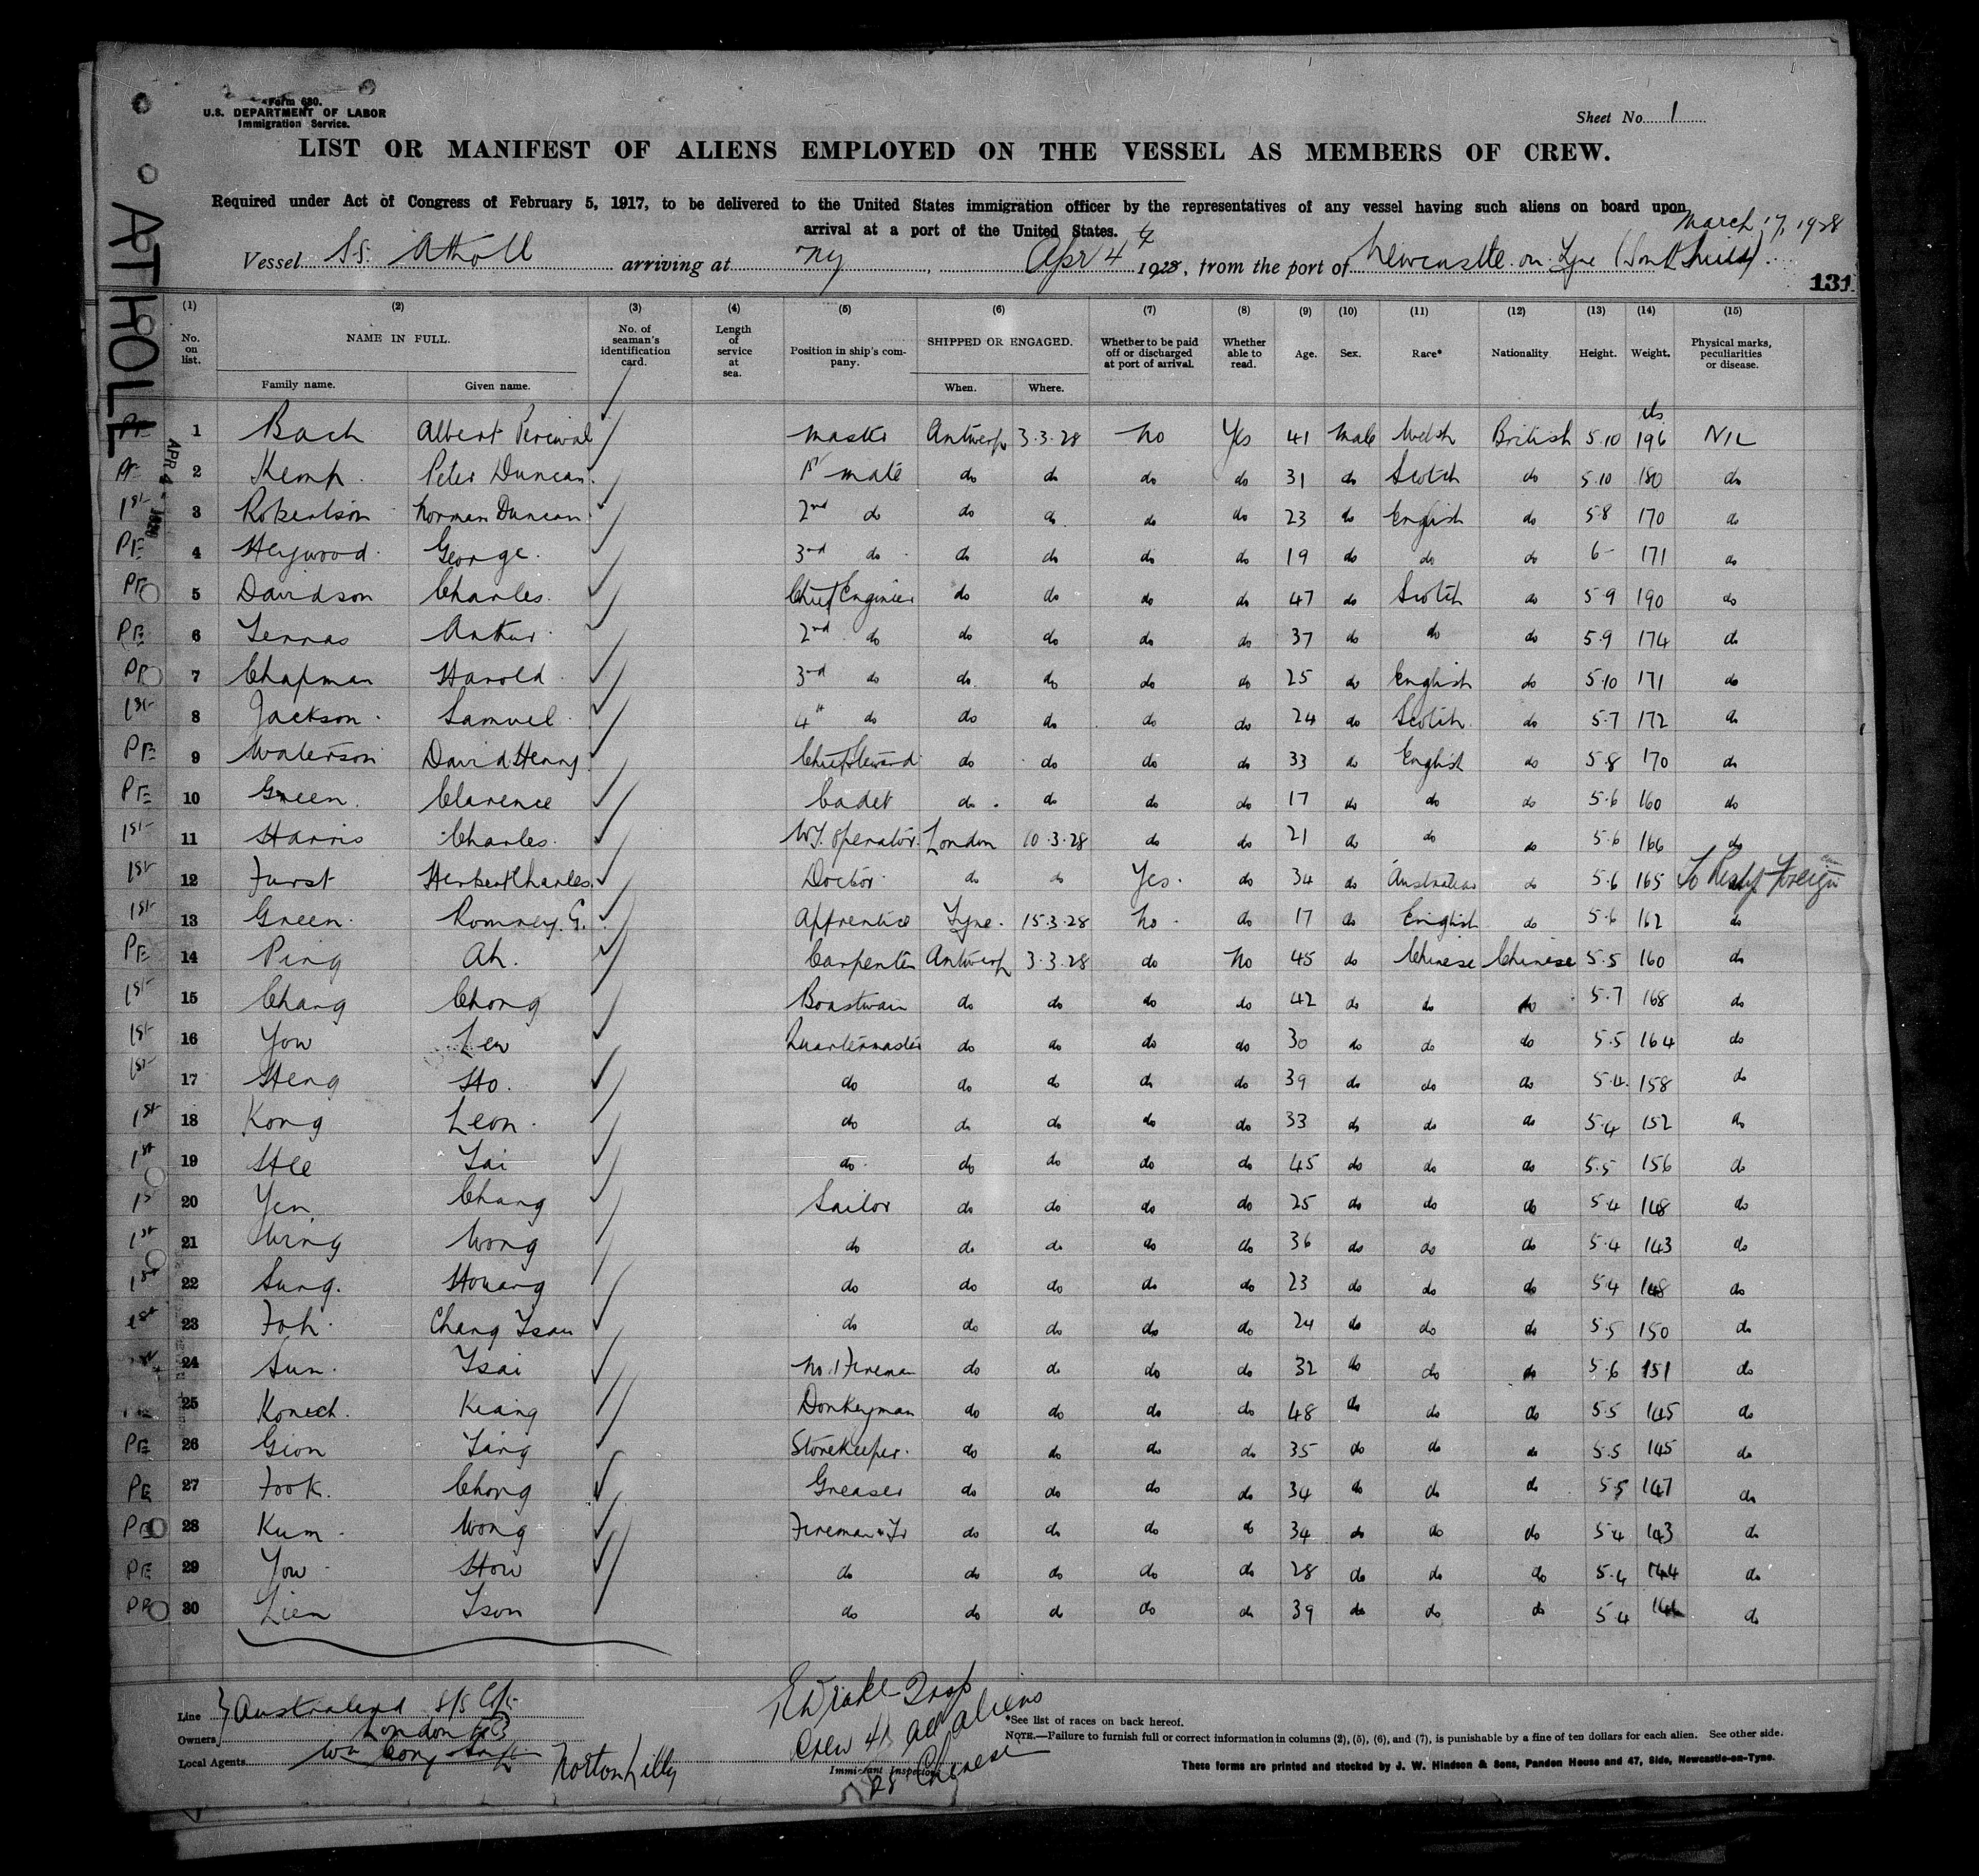 Form 680.
U.S. DEPARTMENT OF LABOR
Immigration Service.
Sheet No. 1
LIST OR MANIFEST OF ALIENS EMPLOYED ON THE VESSEL AS MEMBERS OF CREW.
Required under Act of Congress of February 5, 1917, to be delivered to the United States immigration officer by the representatives of any vessel having such aliens on board upon
arrival at a port of the United States.
March 17, 1928
Vessel S.S. Atholl arriving at NY, Apr 4 1928, from the port of Newcastle on Tyne (South Shields).
131
ATHOLL
APR 4 - 1928
(1) (2) (3) (4) (5) (6) (7) (8) (9) (10) (11) (12) (13) (14) (15)
No. on list. NAME IN FULL. No. of seaman's identification card. Length of service at sea. Position in ship's company. SHIPPED OR ENGAGED. Whether to be paid off or discharged at port of arrival. Whether able to read. Age. Sex. Race* Nationality. Height. Weight. Physical marks, peculiarities or disease.
Family name. Given name. When. Where.
PE 1 Bach Albert Percival master Antwerp 3.3.28 No Yes 41 male Welsh British 5.10 196 NIL
PE 2 Kemp Peter Duncan 1st mate do do do do 31 do Scotch do 5.10 180 do
1st 3 Robertson Norman Duncan 2nd do do do do do 23 do English do 5.8 170 do
PE 4 Heywood George 3rd do do do do do 19 do do do 6 - 171 do
PE 5 Davidson Charles Chief Engineer do do do do 47 do Scotch do 5.9 190 do
PE 6 Arthur 2nd do do do do do 37 do do do 5.9 174 do
PE 7 Chapman Harold 3rd do do do do do 25 do English do 5.10 171 do
1st 8 Jackson Samuel 4th do do do do do 24 do Scotch do 5.7 172 do
PE 9 Waterson David Henry Chief Steward do do do do 33 do English do 5.8 170 do
PE 10 Green Clarence Cadet do do do do 17 do do do 5.6 160 do
1st 11 Harris Charles W.T. operator London 10.3.28 do do 21 do do do 5.6 166 do
1st 12 Furst Herbert Charles Doctor do do Yes do 34 do Australian do 5.6 165 To Reship Foreign
1st 13 Green Romney G. Apprentice Tyne 15.3.28 No do 17 do English do 5.6 162 do
PE 14 Ping Ah Carpenter Antwerp 3.3.28 do No 45 do Chinese Chinese 5.5 160 do
1st 15 Chang Chong Boastwain do do do do 42 do do do 5.7 168 do
1st 16 Yow Lew Quartermaster do do do do 30 do do do 5.5 164 do
1st 17 Heng Ho do do do do do 39 do do do 5.4 158 do
1st 18 Kong Leon do do do do do 33 do do do 5.4 152 do
1st 19 Hee Tai do do do do do 45 do do do 5.5 156 do
1st 20 Yen Chang Sailor do do do do 25 do do do 5.4 148 do
1st 21 Wing Wong do do do do do 36 do do do 5.4 143 do
1st 22 Sung Houang do do do do do 23 do do do 5.4 148 do
1st 23 Foh Chang Tsau do do do do do 24 do do do 5.5 150 do
24 Sun Tsai No. 1 Fireman do do do do 32 do do do 5.6 151 do
25 Koneeh Kiang Donkeyman do do do do 48 do do do 5.5 145 do
PE 26 Gion Tang Storekeeper do do do do 35 do do do 5.5 145 do
PE 27 Fook Chong Greaser do do do do 34 do do do 5.5 147 do
PE 28 Kum Wong Fireman & Tr do do do do 34 do do do 5.4 143 do
PE 29 Yow How do do do do do 28 do do do 5.4 144 do
PE 30 Lien Tson do do do do do 39 do do do 5.4 do
Line Australend S/S
Owners London EC3
Local Agents Wm Cory
Norton Lilly
Drake Insp
Crew 41 all aliens
28 Chinese
Immigrant Inspector.
*See list of races on back hereof.
NOTE.—Failure to furnish full or correct information in columns (2), (5), (6), and (7), is punishable by a fine of ten dollars for each alien. See other side.
These forms are printed and stocked by J. W. Hindson & Sons, Pandon House and 47, Side, Newcastle-on-Tyne.